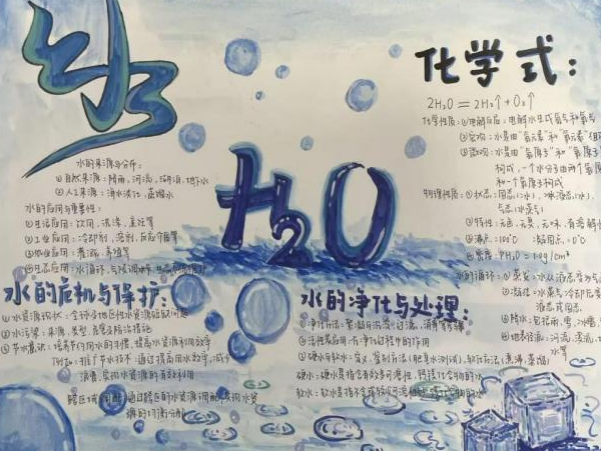 水
H₂O
化学式:
2H₂O = 2H₂↑ + O₂↑
化学性质: ①电解反应: 电解水生成氢气和氧气
②宏观: 水是由“氧元素”和“氢元素”组
③微观: 水是由“氢原子”和“氧原子”
构成, 一个水分子由两个氢原
和一个氧原子构成
物理性质: ①状态: 固态(冰), 液态(水),
气态(水蒸气)
②特性: 无色, 无臭, 无味, 有溶解
③沸点: 100°C 凝固点: 0°C
④密度: ρH₂O = 1.0g/cm³
水的循环: ① 蒸发: 水从液态变为
②凝结: 水蒸气冷却后
液态或固态
③降水: 包括雨, 雪, 冰雹
④地表径流: 河流, 湖泊,
水等
水的来源与分布:
①自然来源: 降雨, 河流, 湖泊, 地下水
②人工来源: 海水淡化, 蓄水
水的应用与重要性:
①生活应用: 饮用, 洗涤, 烹饪等
②工业应用: 冷却剂, 溶剂, 反应介质等
③农业应用: 灌溉, 养殖等
④生态应用: 水循环, 气候调
水的危机与保护:
①水资源现状: 全球淡水
②水污染: 来源, 类型, 危害及防治措施
③节水意识: 培养节约用水的习惯, 提高水资源利用效率
例如: 推广节水技术, 通过提高用水效率, 减少
浪费, 实现水资源的有效利用
通过跨区的水资源调配, 实现水资
源的均衡分配
水的净化与处理:
①净化方法: 沉淀, 过滤, 消毒等步骤
②活性炭应用: 在净水过程中的作用
③硬水与软水: 定义, 鉴别方法(肥皂水测试), 软化方法(煮沸, 蒸馏)
硬水: 硬水是指含有较多可溶性, 钙镁化合物的水
软水: 软水是指不含或较少可溶性钙镁化合物的水